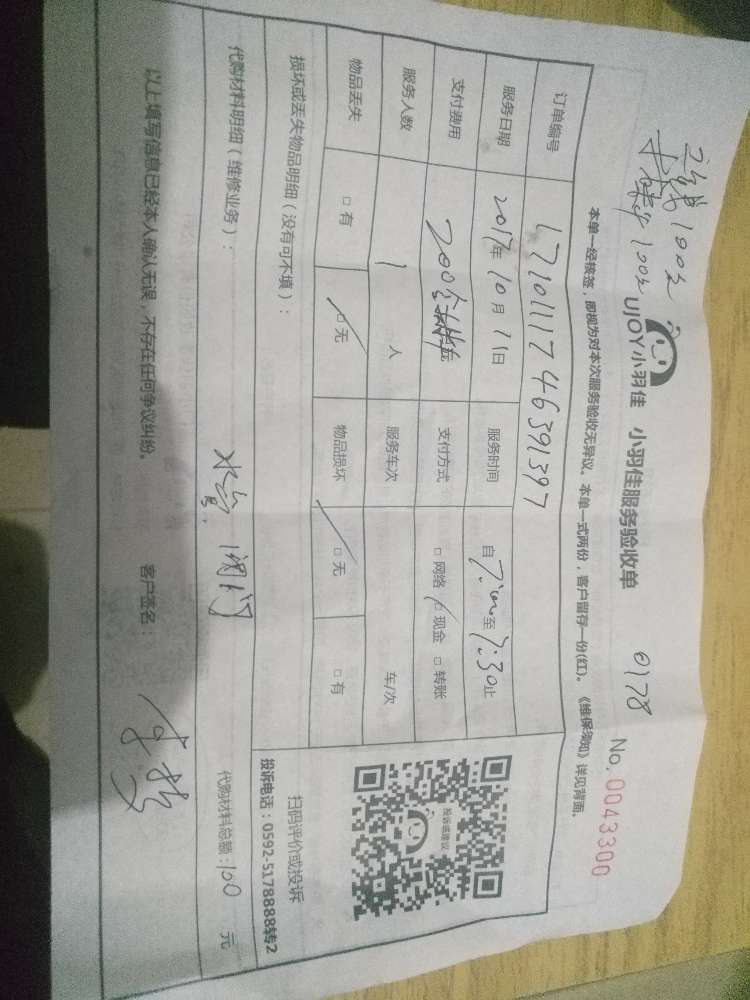 工钱100元
材料100元
0178
UJOY小羽佳 小羽佳服务验收单 No. 0043300
本单一经核签，即视为对本次服务验收无异议。本单一式两份，客户留存一份(红)。《维保须知》详见背面。
订单编号 L7101117463913​97
服务日期 2017年10月11日 服务时间 自7:00至7:30止
支付费用 200 支付方式 □ 网络 □ 现金 □ 转账
服务人数 1 人 服务车次 车/次
物品丢失 □ 有 □ 无 物品损坏 □ 无 □ 有
损坏或丢失物品明细（没有可不填）：
扫码评价或投诉
投诉电话：0592-5178888转2
代购材料明细（维修业务）： 水管 阀门 代购材料总额：100 元
以上填写信息已经本人确认无误，不存在任何争议纠纷。 客户签名：
投诉或建议